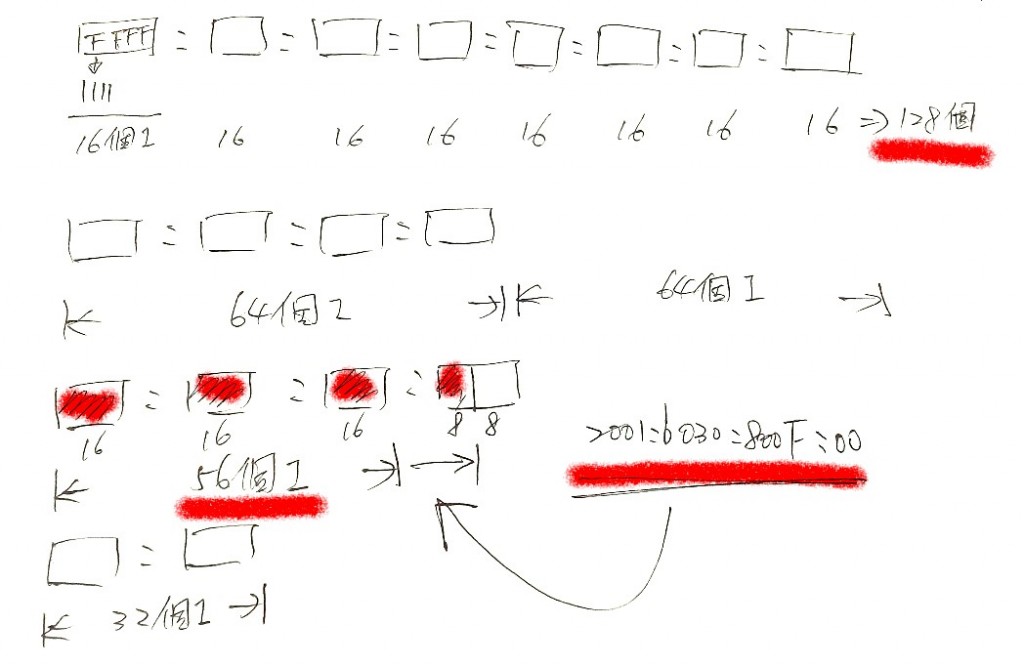 FFFF = = = = = = =
1111
16個1 16 16 16 16 16 16 16 => 128個
= = =
64個1 64個1
= = =
16 16 16 8 8
2001:6030:800F::00
56個1
=
32個1